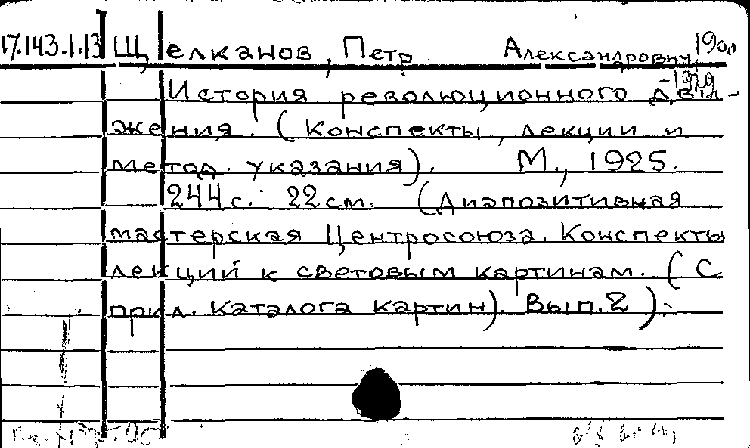 17.143.1.13 Щелканов, Петр Александрович, 1900
История революционного дви-
жения. (Конспекты, лекции и
метод. указания). М., 1925.
244с. 22см. (Диапозитивная
мастерская Центросоюза. Конспекты
лекций к световым картинам. (С
прил. каталога картин). Вып.2).